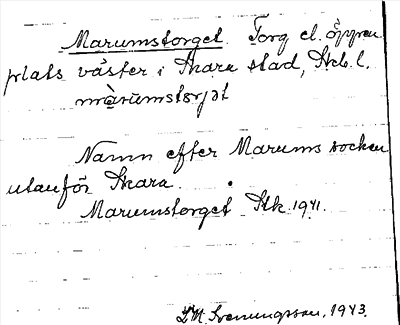 Marumstorget Torg el. öppen
plats väster i Skara stad, Skb. l.
màrumstɔrjət
Namn efter Marums socken
utanför Skara.
Marumstorget Stk. 1941.
Svenungsson, 1943.